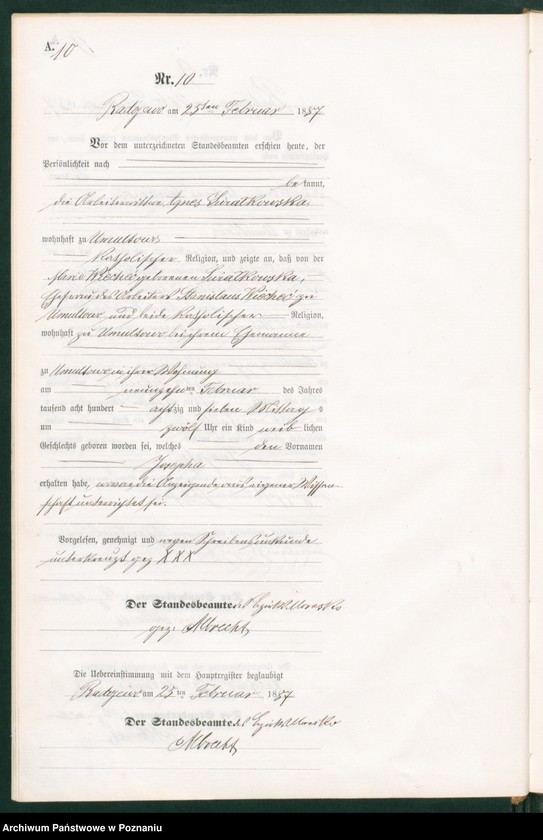 A. 10
Nr. 10
Radojewo am 25ten Februar 1887
Vor dem unterzeichneten Standesbeamten erschien heute, der
Persönlichkeit nach
bekannt,
die Arbeiterwittwe Agnes Swiatkowska
wohnhaft zu Umultowo
katholischer Religion, und zeigte an, daß von der
Marie Wiecheć geborenen Swiatkowska,
Ehefrau des Arbeiters Stanislaus Wiecheć zu
Umultowo und beide katholischer Religion,
wohnhaft zu Umultowo bei ihrem Ehemanne
zu Umultowo in ihrer Wohnung
am neunzehnten Februar des Jahres
tausend acht hundert achtzig und sieben Mittag s
um zwölf Uhr ein Kind weiblichen
Geschlechts geboren worden sei, welches den Vornamen
Josepha
erhalten habe, wovon die Anzeigende aus eigener Wissen-
schaft unterrichtet sei.
Vorgelesen, genehmigt und wegen Schreibensunkunde
unterkreuzt gez XXX
Der Standesbeamte des Bezirks Morasko
gez. Albrecht
Die Uebereinstimmung mit dem Hauptregister beglaubigt
Radojewo am 25ten Februar 1887
Der Standesbeamte des Bezirks Morasko
Albrecht
Archiwum Państwowe w Poznaniu